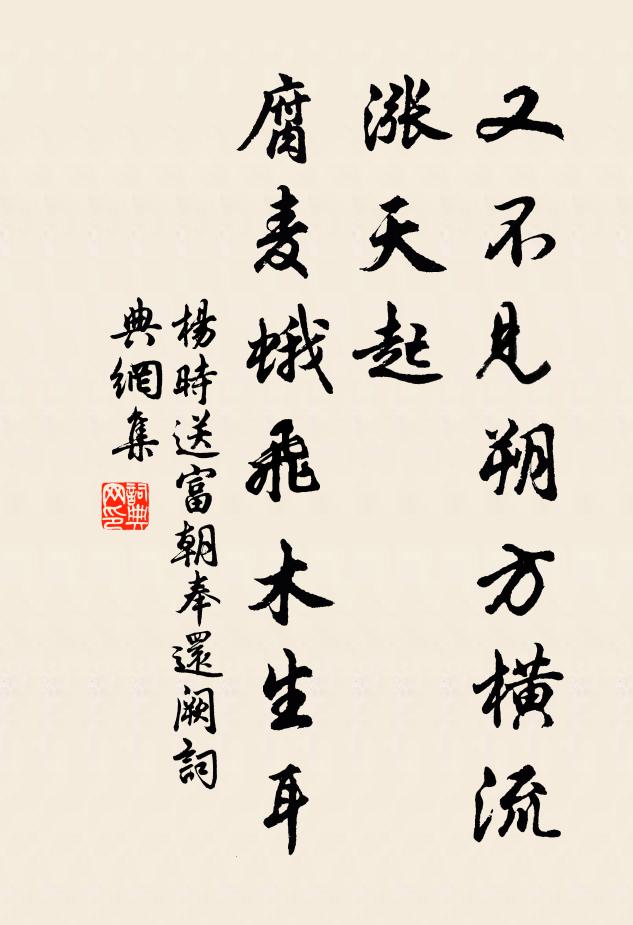 又不見朔方橫流
漲天起
腐麦蛾飛木生耳
楊時送富朝奉還闕詞
典網集
詞典
网印